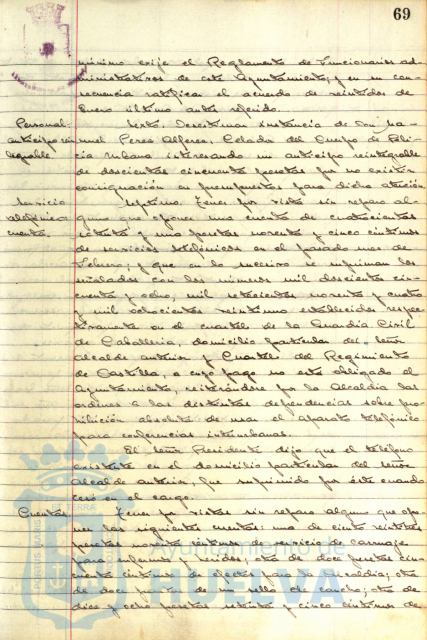 69
mínimo exije el Reglamento de Funcionarios ad-
ministrativos de este Ayuntamiento, y en su con-
secuencia ratificar el acuerdo de veintidos de
Enero último antes referido.
Personal- Sexto. Desestimar instancia de Don Ma-
anticipo rein nuel Perea Alfaro, Celador del Cuerpo de Poli-
tegrable. cía Urbana interesando un anticipo reintegrable
de doscientas cincuenta pesetas por no existir
consignación en presupuestos para dicha atención
Servicio Septimo. Tener por vista sin reparo al-
telefónico guno que oponer una cuenta de cuatrocientas
cuenta. setenta y una pesetas noventa y cinco céntimos
de servicios telefónicos en el pasado mes de
Febrero; y que en lo sucesivo se supriman los
señalados con los números mil doscientos cin-
cuenta y ocho, mil setecientos noventa y cuatro
y mil ochocientos veintiuno establecidos respec-
tivamente en el cuartel de la Guardia Civil
de Caballería, domicilio particular del señor
Alcalde anterior y Cuartel del Regimiento
de Castilla, a cuyo pago no está obligado el
Ayuntamiento, reiterándose por la Alcaldía las
ordenes a las distintas dependencias sobre pro-
hibición absoluta de usar el aparato telefónico
para conferencias interurbanas.
El señor Presidente dijo que el teléfono
existente en el domicilio particular del señor
Alcalde anterior, fue suprimido por éste cuando
cesó en el cargo.
Cuentas Tener por vistas sin reparo alguno que opo-
ner las siguientes cuentas: una de ciento veintiseis
pesetas noventa céntimos de servicio de carruajes
para enfermos y heridos; otra de doce pesetas cin-
cuenta céntimos de efectos para la Alcaldía; otra
de doce pesetas de un sello de caucho; otra de
diez y ocho pesetas setenta y cinco céntimos de
Ayuntamiento de
HUELVA
PORTUS MARIS